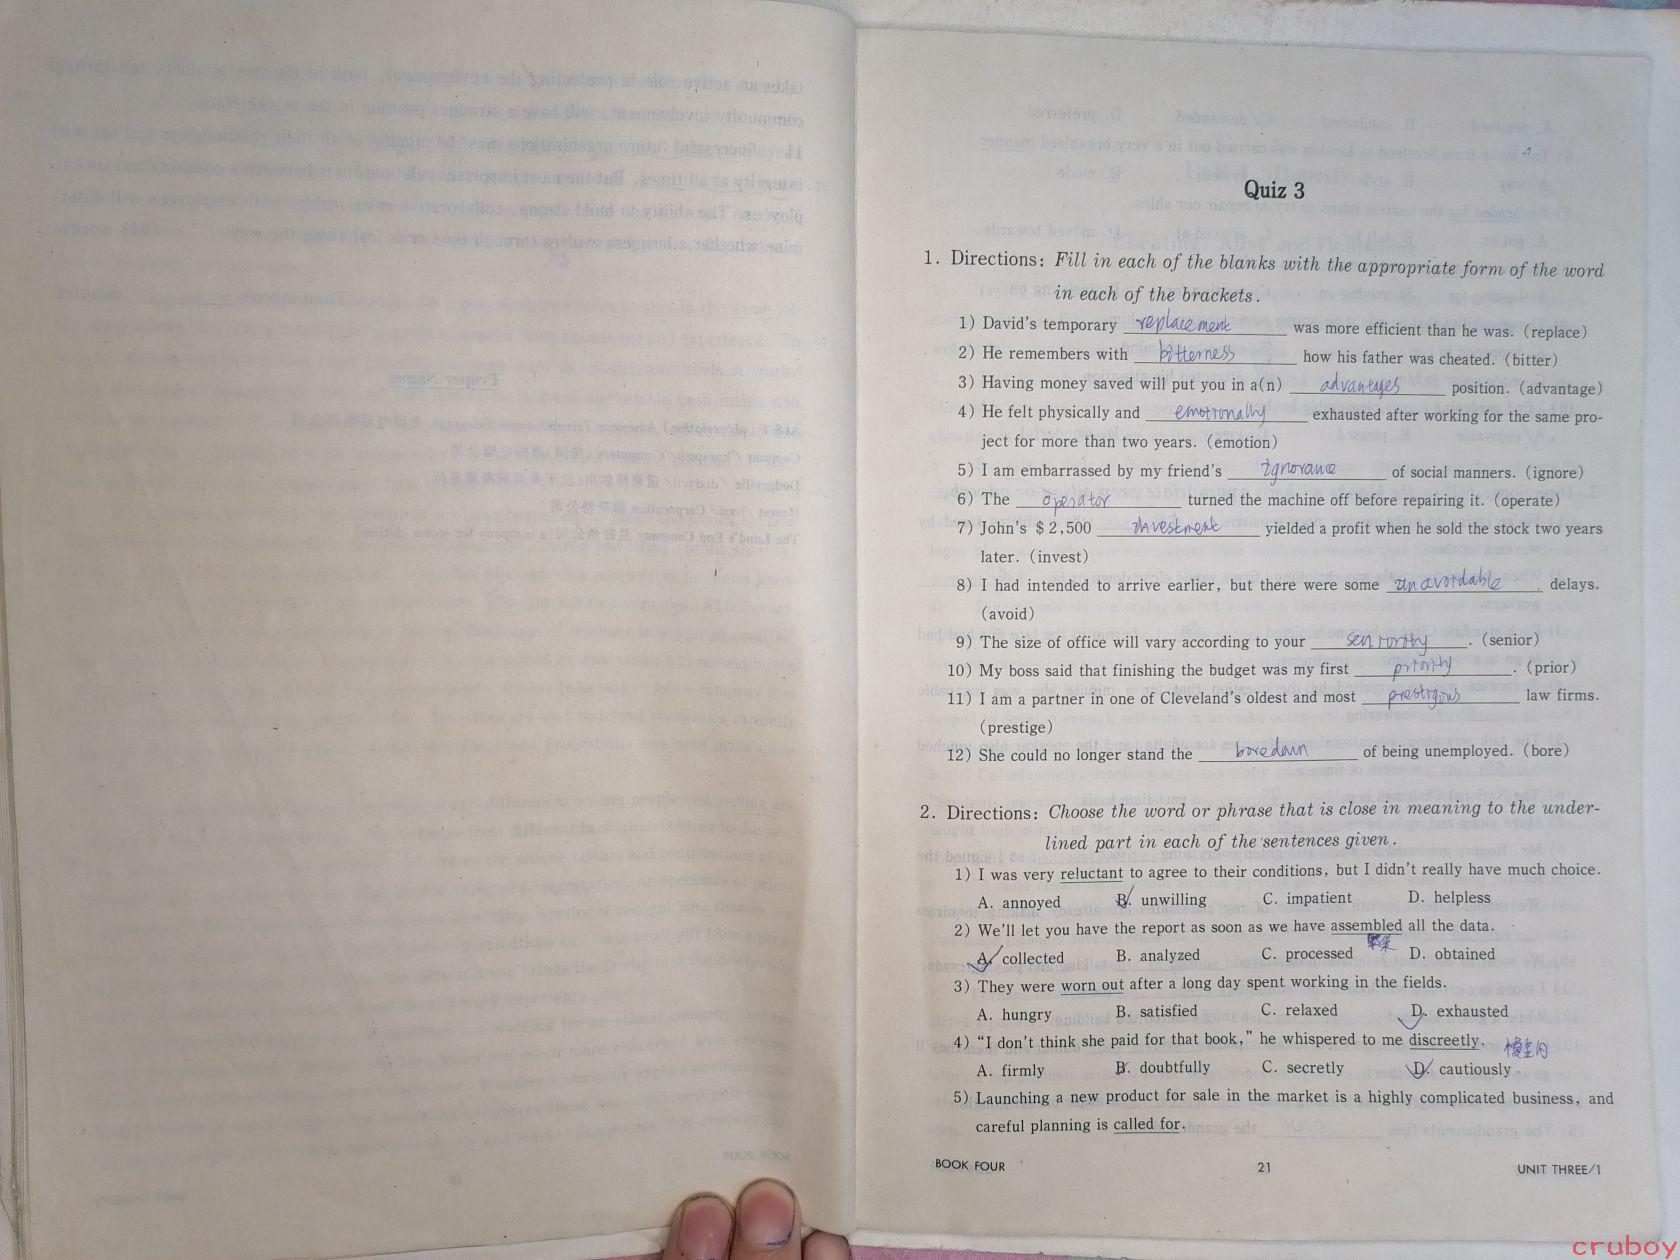 Quiz 3
1. Directions: Fill in each of the blanks with the appropriate form of the word
in each of the brackets.
1) David's temporary replacement was more efficient than he was. (replace)
2) He remembers with bitterness how his father was cheated. (bitter)
3) Having money saved will put you in a(n) advantages position. (advantage)
4) He felt physically and emotionally exhausted after working for the same pro-
ject for more than two years. (emotion)
5) I am embarrassed by my friend's ignorance of social manners. (ignore)
6) The operator turned the machine off before repairing it. (operate)
7) John's $2,500 investment yielded a profit when he sold the stock two years
later. (invest)
8) I had intended to arrive earlier, but there were some unavoidable delays.
(avoid)
9) The size of office will vary according to your . (senior)
10) My boss said that finishing the budget was my first priority . (prior)
11) I am a partner in one of Cleveland's oldest and most law firms.
(prestige)
12) She could no longer stand the of being unemployed. (bore)
2. Directions: Choose the word or phrase that is close in meaning to the under-
lined part in each of the sentences given.
1) I was very reluctant to agree to their conditions, but I didn't really have much choice.
A. annoyed B. unwilling C. impatient D. helpless
2) We'll let you have the report as soon as we have assembled all the data.
A. collected B. analyzed C. processed D. obtained
3) They were worn out after a long day spent working in the fields.
A. hungry B. satisfied C. relaxed D. exhausted
4) "I don't think she paid for that book," he whispered to me discreetly.
A. firmly B. doubtfully C. secretly D. cautiously
5) Launching a new product for sale in the market is a highly complicated business, and
careful planning is called for.
BOOK FOUR 21 UNIT THREE/1
cruboy